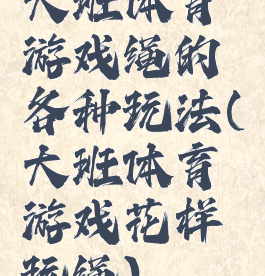 大班体育
游戏绳的
各种玩法(
大班体育
游戏花样
玩绳)